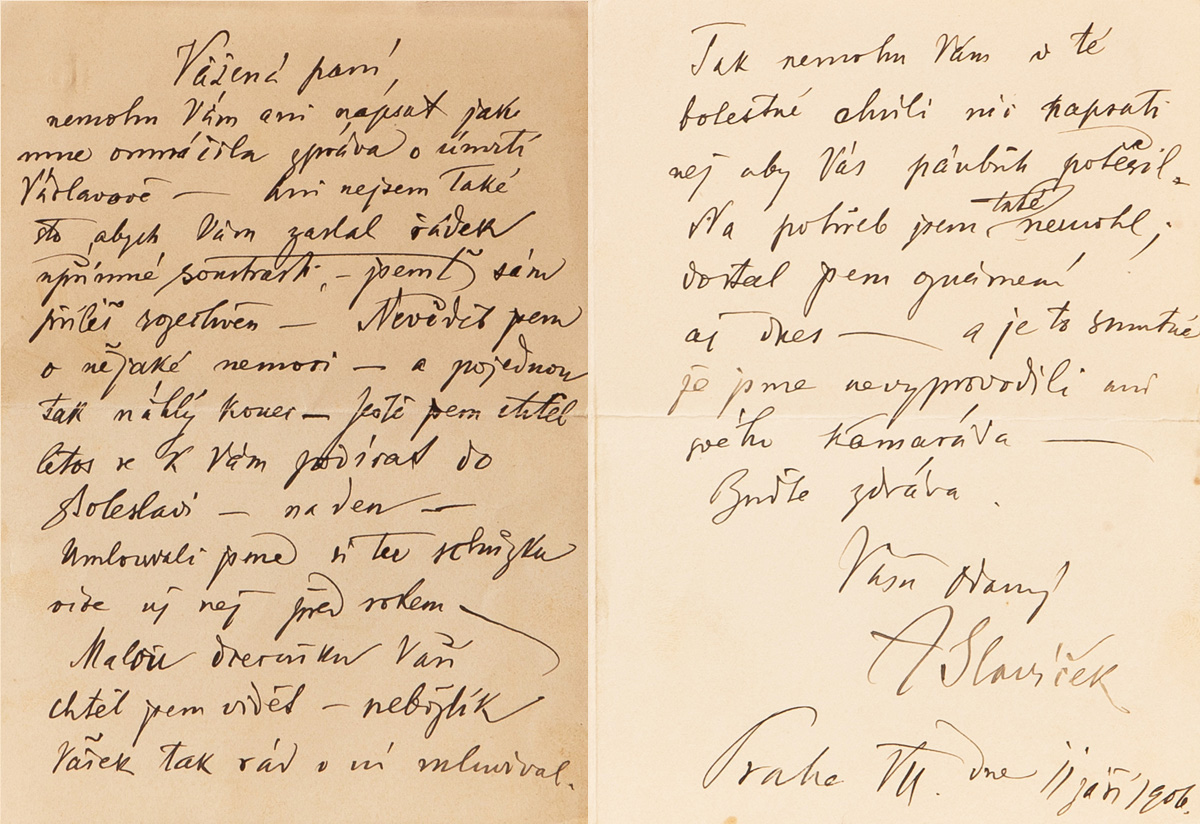 Vážená paní,
nemohu Vám ani napsat jak
mne omráčila zpráva o úmrtí
Václavově — Ani nejsem také
sto, abych Vám zaslal řádek
upřímné soustrasti, – jsemť sám
příliš rozechvěn — Nevěděl jsem
o nějaké nemoci — a pojednou
tak náhlý konec — Ještě jsem chtěl
letos se k Vám podívat do
Boleslavi — na den —
Umlouvali jsme si tu schůzku
více už než před rokem —
Malou dcerušku Vaši
chtěl jsem viděti — nebožtík
Vašek tak rád o ní mluvíval.
Tak nemohu Vám v té
bolestné chvíli nic napsati
než aby Vás pánbůh potěšil.
Na pohřeb jsem také nemohl;
dostal jsem oznámení
až dnes — a je to smutné
že jsme nevyprovodili ani
svého kamaráda —
Buďte zdráva.
Vám oddaný
ASlavíček
Praha VII. dne 11 září 1906.